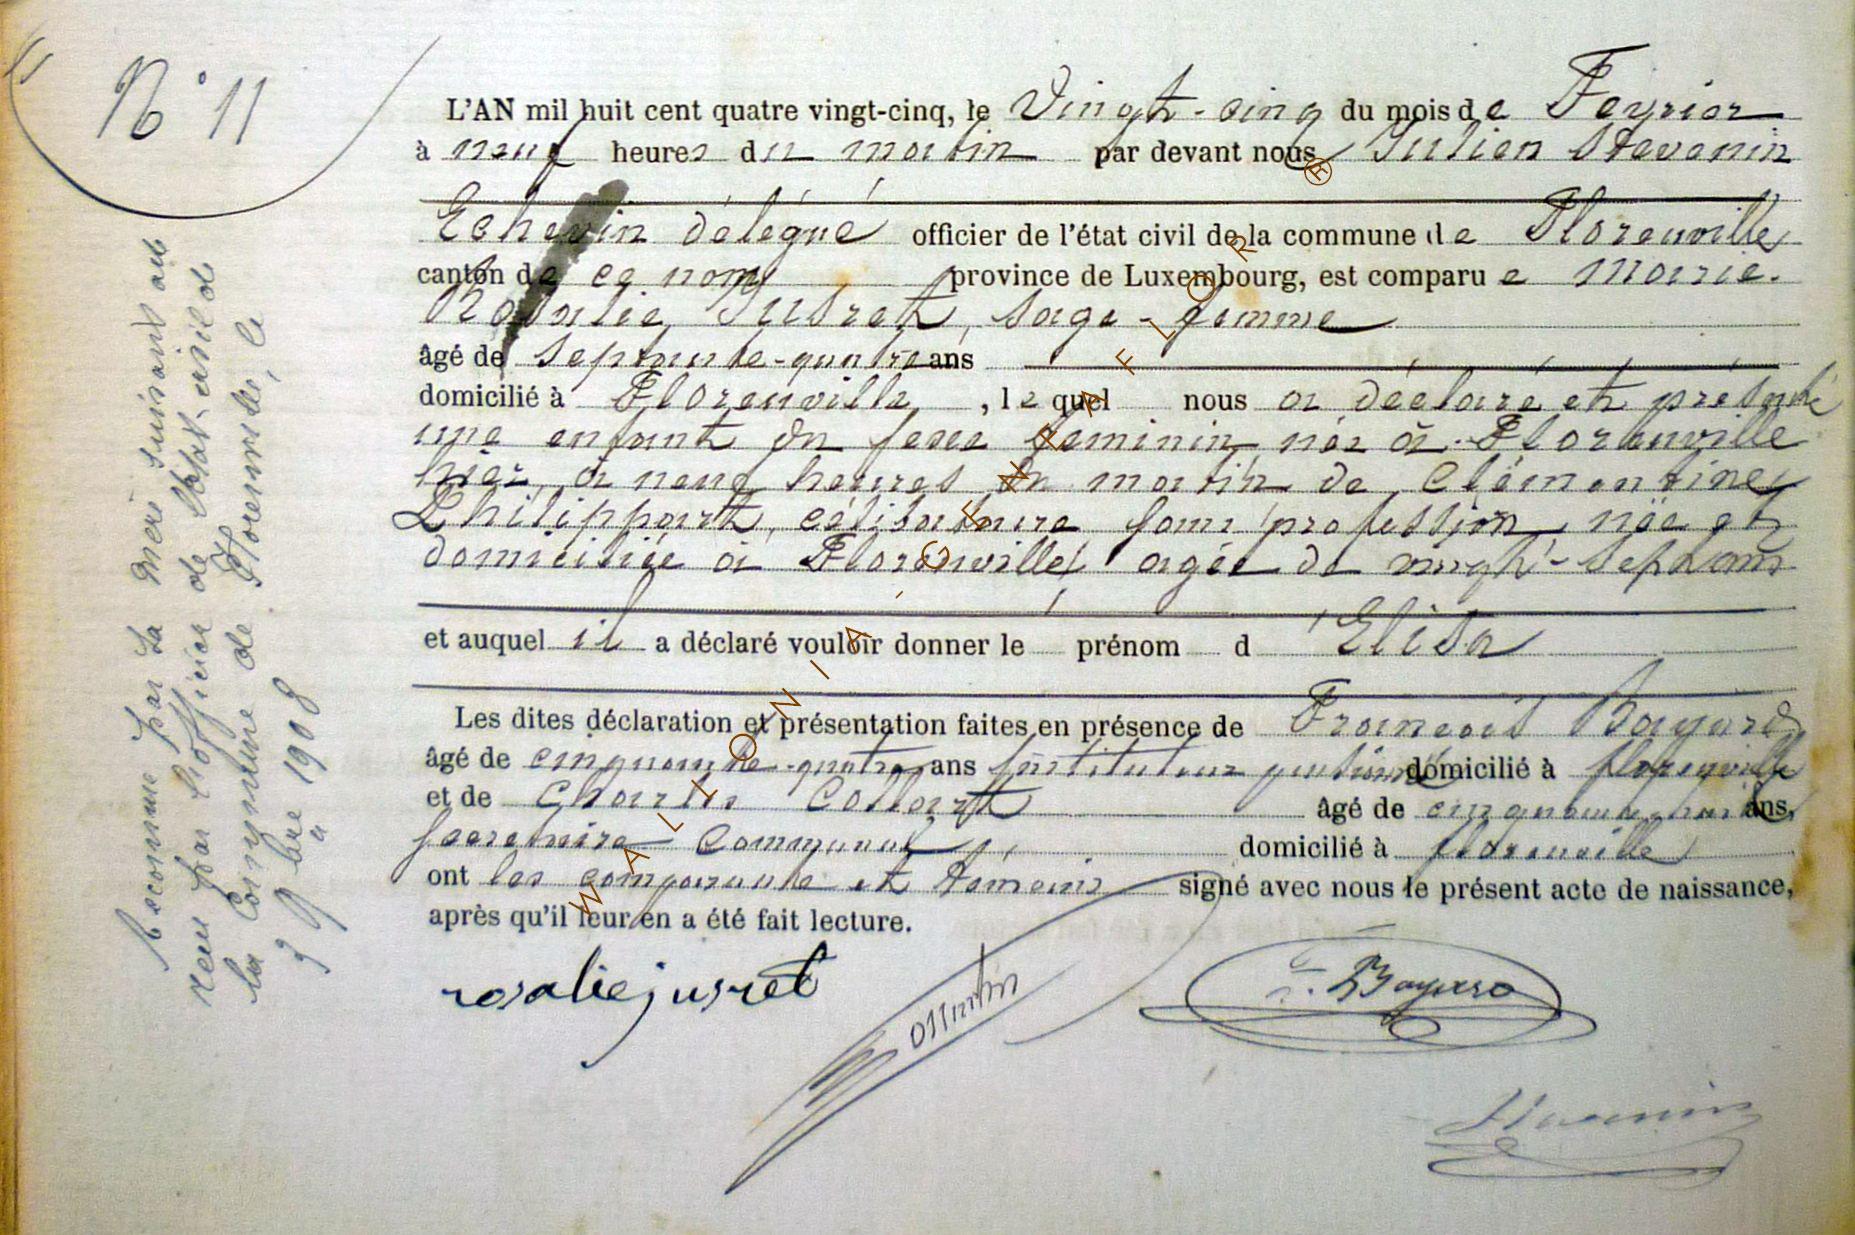 N° 11
L'AN mil huit cent quatre vingt-cinq, le Vingt-cinq du mois de Fevrier
à neuf heures du matin par devant nous Julien Stevenin
Echevin délégué officier de l'état civil de la commune de Florenville
canton de ce nom province de Luxembourg, est comparu e Marie-
Rosalie Jusret, sage-femme
âgé de septante-quatre ans
domicilié à Florenville, le quel nous a déclaré et présenté
une enfant du sexe feminin née à Florenville
hier, à neuf heures du matin de Clémentine
Philippart, célibataire sans profession, née et
domiciliée à Florenville, agée de vingt-sept ans
et auquel il a déclaré vouloir donner le prénom d'Elisa
Les dites déclaration et présentation faites en présence de François Bayard
âgé de cinquante-quatre ans Instituteur pensionné domicilié à florenville
et de Charles Collart âgé de cinquante-huit ans,
secretaire communal domicilié à florenville
ont les comparante et témoins signé avec nous le présent acte de naissance,
après qu'il leur en a été fait lecture.
rosalie jusret
F. Bayard
Stevenin
Reconnue par sa mère suivant acte
reçu par l'officier de l'état-civil de
la Commune de Florenville, le
3 9bre 1908
WALLONIA - GENEAFLOR ®